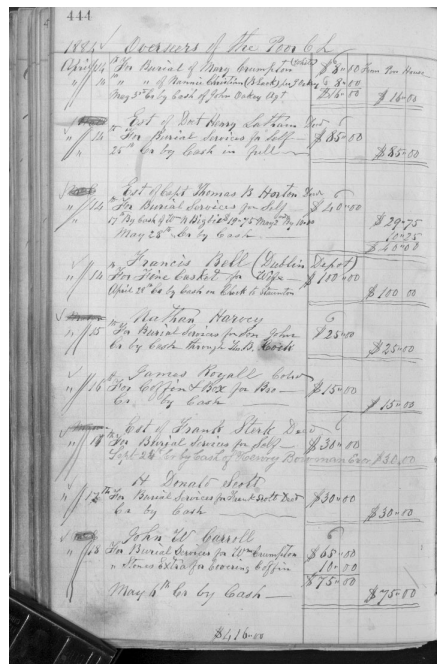 444
1884 Overseers of the Poor Ch
April 14 th For Burial of Mary Crumpton $8-00 From Poor House
" 14 " " " of Nannie Christian (Black) for J Oakey $8-00
May 3rd Cr by Cash of John Oakey Agt $16-00 $16-00
Est of Henry Latham Decd
" 14 th For Burial Services for Self $85-00
25th Cr by Cash in full $85-00
Est of Capt Thomas B Horton Decd
" 14 th For Burial Services for Self $40-00
17th By Cash of $29-75
May 25th Cr by Cash 10-25
$40-00
Francis Bell (Dublin Depot)
" 14 For Fine Casket for Wife $100-00
April 28th Cr by Cash on Check to Staunton $100 00
Nathan Harvey
" 15 th For Burial Services for Son John $25-00
Cr by Cash through $25-00
James Royall Cold
" 16 th For Coffin & Box for Bro $15-00
Cr by Cash $15-00
Est of Frank Sterk Decd
" 17 th For Burial Services for Self $30-00
Sept 24th Cr by Cash of Henry Bowman $30.00
H Donald Scott
" 17th For Burial Services for Frank Scott Decd $30-00
Cr by Cash $30-00
John W Carroll
" 18 For Burial Services for Wm Crumpton $65-00
" Stones extra for covering Coffin 10-00
$75-00
May 4th Cr by Cash $75-00
$416-00